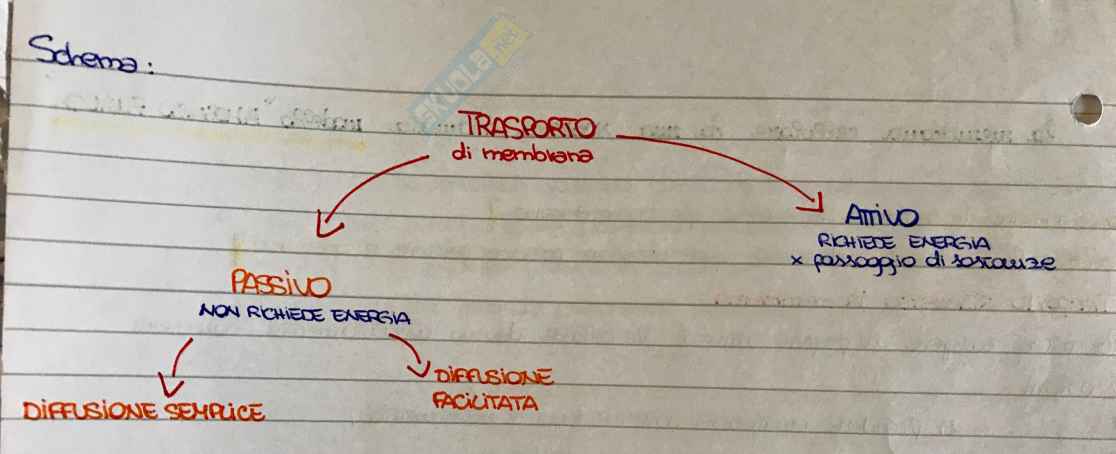 Schema:
SKUOLA.net
TRASPORTO
di membrana
ATTIVO
RICHIEDE ENERGIA
x passaggio di sostanze
PASSIVO
NON RICHIEDE ENERGIA
DIFFUSIONE SEMPLICE
DIFFUSIONE
FACILITATA